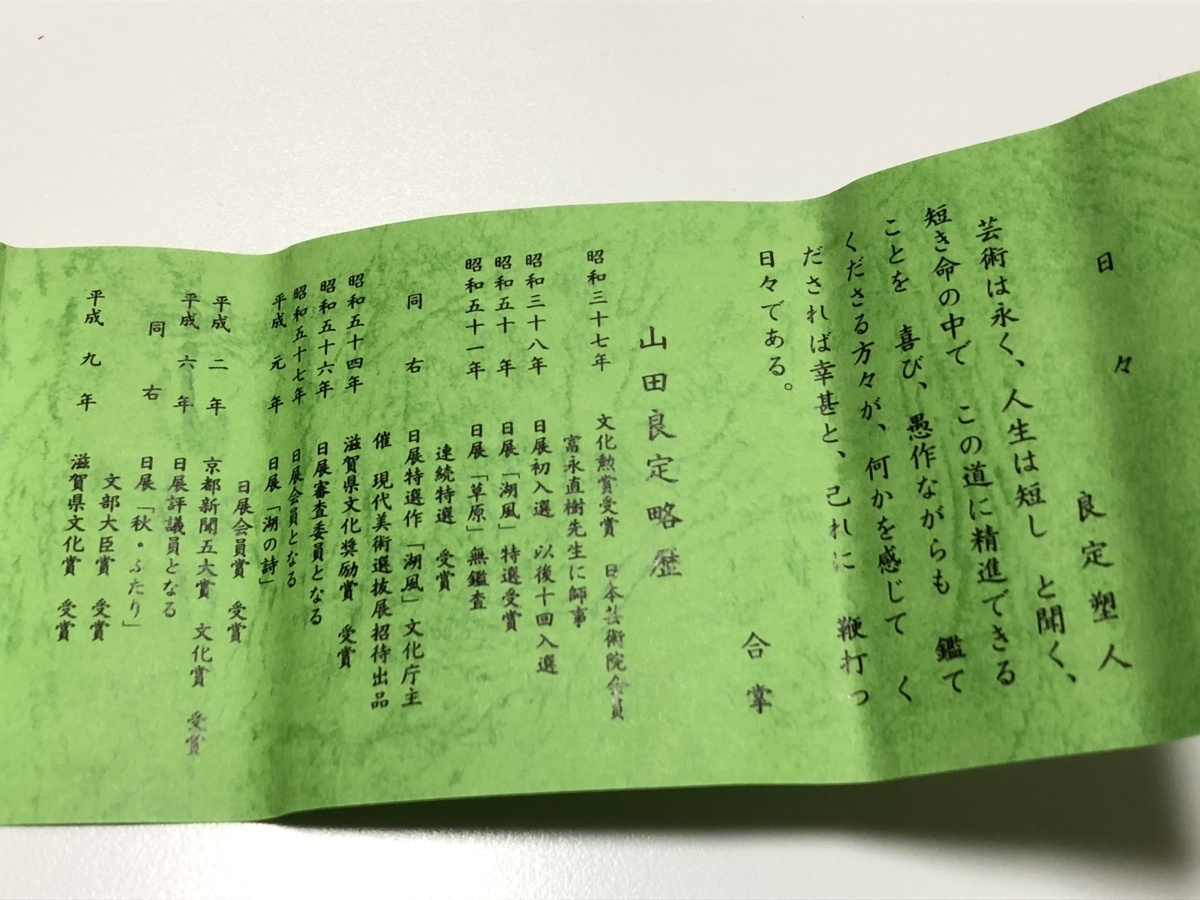 日々
良定塑人
芸術は永く、人生は短し と聞く、
短き命の中で この道に精進できる
ことを 喜び、愚作ながらも 鑑て
くださる方々が、何かを感じて く
だされば幸甚と、己れに 鞭打つ
日々である。
合掌
山田良定略歴
昭和三十七年 文化勲賞受賞 日本芸術院会員
富永直樹先生に師事
昭和三十八年 日展初入選 以後十回入選
昭和五十 年 日展「湖風」特選受賞
昭和五十一年 日展「草原」無鑑査
連続特選 受賞
同 右 日展特選作「湖風」文化庁主
催 現代美術選抜展招待出品
昭和五十四年 滋賀県文化奨励賞 受賞
昭和五十六年 日展審査委員となる
昭和五十七年 日展会員となる
平成 元 年 日展「湖の詩」
日展会員賞 受賞
平成 二 年 京都新聞五大賞 文化賞 受賞
平成 六 年 日展評議員となる
同 右 日展「秋・ふたり」
文部大臣賞 受賞
平成 九 年 滋賀県文化賞 受賞